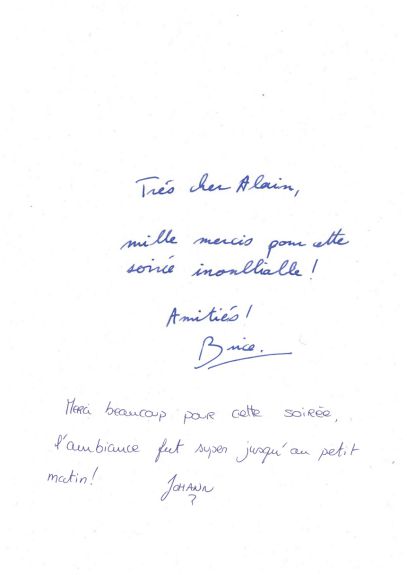 Trés cher Alain,
mille mercis pour cette
soirée inoubliable !
Amitiés !
Brice.
Merci beaucoup pour cette soirée,
l'ambiance fut super jusqu'au petit
matin !
JOHANN
?